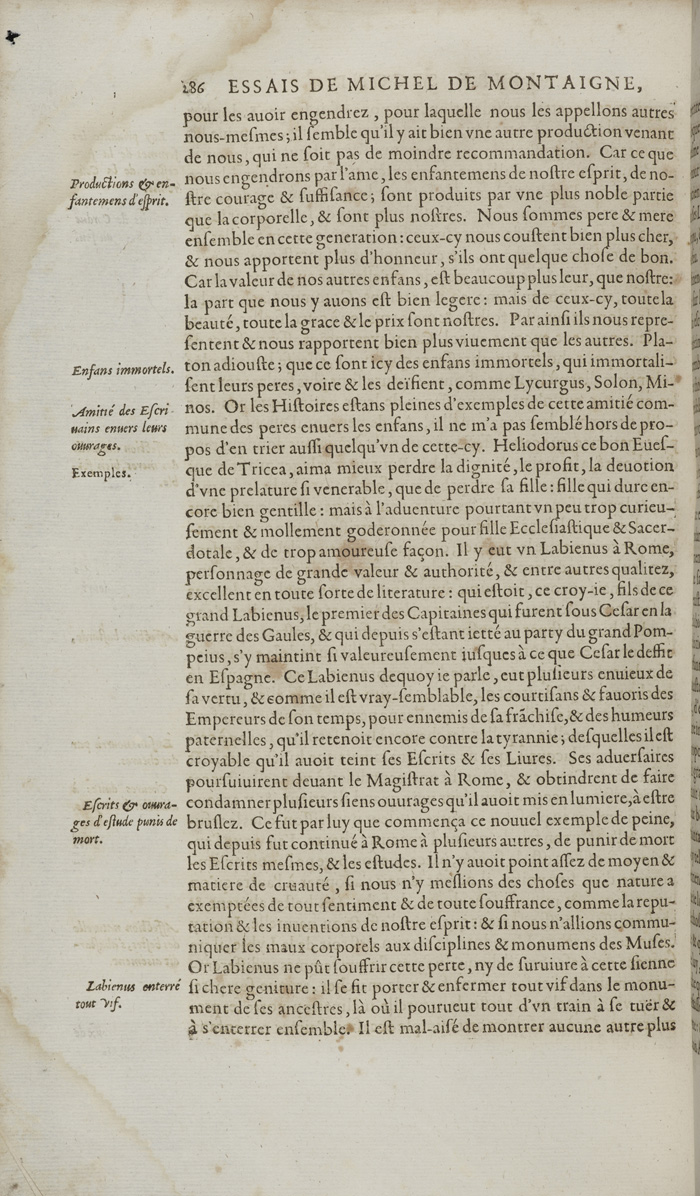 286 ESSAIS DE MICHEL DE MONTAIGNE,
pour les auoir engendrez, pour laquelle nous les appellons autres
nous-meſmes; il ſemble qu'il y ait bien vne autre production venant
de nous, qui ne ſoit pas de moindre recommandation. Car ce que
Productions & en-
fantemens d'eſprit.
nous engendrons par l'ame, les enfantemens de noſtre eſprit, de no-
ſtre courage & ſuffiſance; ſont produits par vne plus noble partie
que la corporelle, & ſont plus noſtres. Nous ſommes pere & mere
enſemble en cette generation: ceux-cy nous couſtent bien plus cher,
& nous apportent plus d'honneur, s'ils ont quelque choſe de bon.
Car la valeur de nos autres enfans, eſt beaucoup plus leur, que noſtre:
la part que nous y auons eſt bien legere: mais de ceux-cy, toute la
beauté, toute la grace & le prix ſont noſtres. Par ainſi ils nous repre-
ſentent & nous rapportent bien plus viuement que les autres. Pla-
Enfans immortels.
ton adiouſte; que ce ſont icy des enfans immortels, qui immortali-
ſent leurs peres, voire & les deïfient, comme Lycurgus, Solon, Mi-
Amitié des Eſcri-
uains enuers leurs
ouurages.
nos. Or les Hiſtoires eſtans pleines d'exemples de cette amitié com-
mune des peres enuers les enfans, il ne m'a pas ſemblé hors de pro-
pos d'en trier auſſi quelqu'vn de cette-cy. Heliodorus ce bon Eueſ-
Exemples.
que de Tricea, aima mieux perdre la dignité, le profit, la deuotion
d'vne prelature ſi venerable, que de perdre ſa fille: fille qui dure en-
core bien gentille: mais à l'aduenture pourtant vn peu trop curieu-
ſement & mollement goderonnée pour fille Eccleſiaſtique & Sacer-
dotale, & de trop amoureuſe façon. Il y eut vn Labienus à Rome,
perſonnage de grande valeur & authorité, & entre autres qualitez,
excellent en toute ſorte de literature: qui eſtoit, ce croy-ie, fils de ce
grand Labienus, le premier des Capitaines qui furent ſous Ceſar en la
guerre des Gaules, & qui depuis s'eſtant ietté au party du grand Pom-
peius, s'y maintint ſi valeureuſement iuſques à ce que Ceſar le deffit
en Eſpagne. Ce Labienus dequoy ie parle, eut pluſieurs enuieux de
ſa vertu, & comme il eſt vray-ſemblable, les courtiſans & fauoris des
Empereurs de ſon temps, pour ennemis de ſa frãchiſe, & des humeurs
paternelles, qu'il retenoit encore contre la tyrannie; deſquelles il eſt
croyable qu'il auoit teint ſes Eſcrits & ſes Liures. Ses aduerſaires
pourſuiuirent deuant le Magiſtrat à Rome, & obtindrent de faire
Eſcrits & ouura-
ges d'eſtude punis de
mort.
condamner pluſieurs ſiens ouurages qu'il auoit mis en lumiere, à eſtre
bruſlez. Ce fut par luy que commença ce nouuel exemple de peine,
qui depuis fut continué à Rome à pluſieurs autres, de punir de mort
les Eſcrits meſmes, & les eſtudes. Il n'y auoit point aſſez de moyen &
matiere de cruauté, ſi nous n'y meſlions des choſes que nature a
exemptées de tout ſentiment & de toute ſouffrance, comme la repu-
tation & les inuentions de noſtre eſprit: & ſi nous n'allions commu-
niquer les maux corporels aux diſciplines & monumens des Muſes.
Or Labienus ne pût ſouffrir cette perte, ny de ſuruiure à cette ſienne
Labienus enterré
tout vif.
ſi chere geniture: il ſe fit porter & enfermer tout vif dans le monu-
ment de ſes anceſtres, là où il pourueut tout d'vn train à ſe tuër &
à s'enterrer enſemble. Il eſt mal-aiſé de montrer aucune autre plus